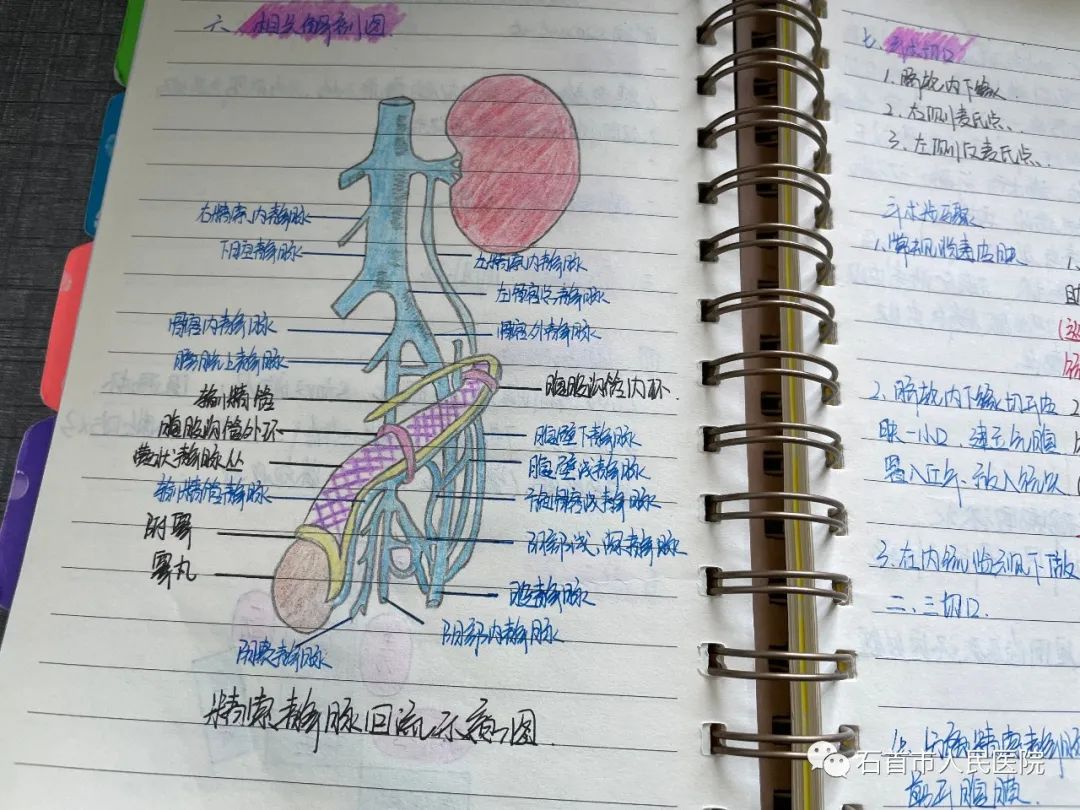 六、相关解剖图
右精索内静脉
下腔静脉
左精索内静脉
左髂总静脉
髂内静脉
髂外静脉
膀胱上静脉
输精管
腹股沟管内环.
腹股沟管外环
腹壁下静脉
蔓状静脉丛
腹壁浅静脉
输精管静脉
旋髂浅静脉
附睾
阴部浅、深静脉
睾丸
股静脉
阴部内静脉
阴囊静脉
精索静脉回流示意图
七、手术切口
1.脐孔内下缘
2.右侧麦氏点、
3.左侧反麦氏点、
手术步骤
1.常规消毒皮肤
2.脐孔内下缘切开皮
肤一小口,建立气腹
置入
3.在内镜监视下做
二、三切口.
精索静脉
剪开腹膜
石首市人民医院